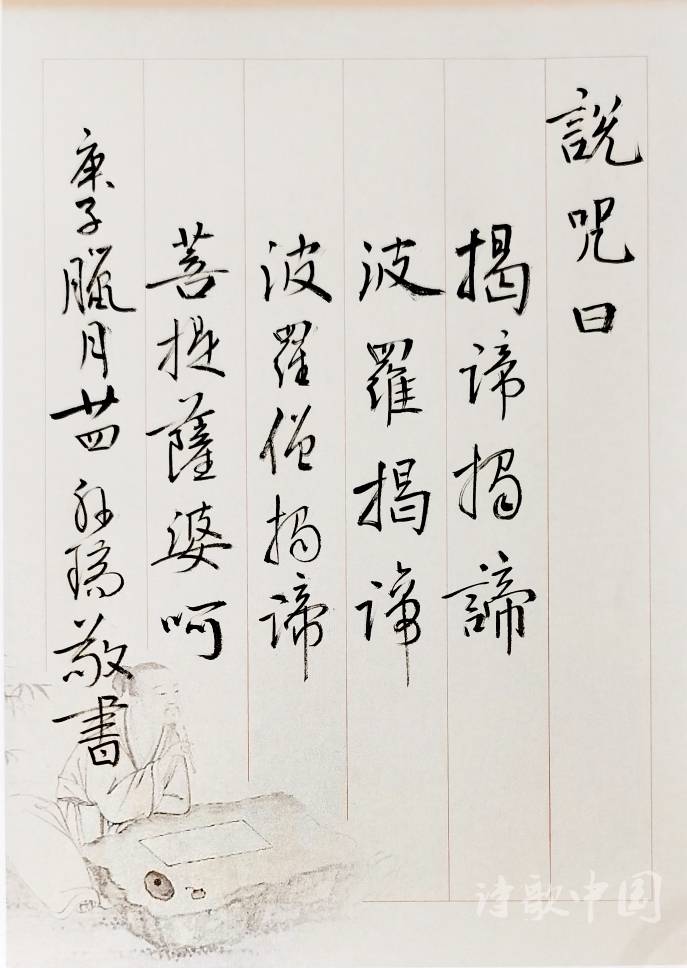 說咒曰
揭諦揭諦
波羅揭諦
波羅僧揭諦
菩提薩婆呵
庚子臘月廿四 敬書
诗歌中国